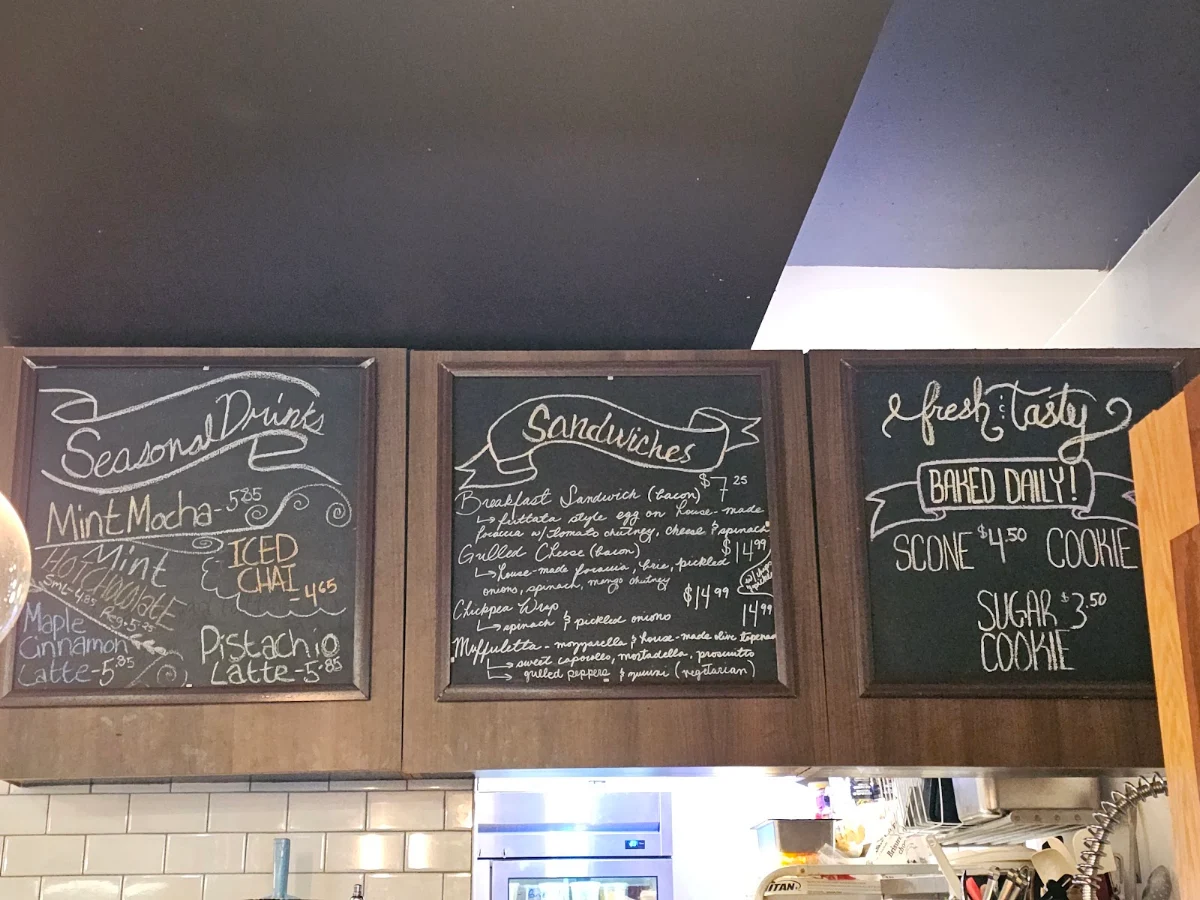 Seasonal Drinks
Mint Mocha - 5.85
Mint
HOT CHOCOLATE
Sml - 4.85 Reg - 5.25
ICED
CHAI - 4.65
Maple
Cinnamon
Latte - 5.85
Pistachio
Latte - 5.85
Sandwiches
Breakfast Sandwich (bacon) $7.25
↳ futtata style egg on house-made
focaccia w/ tomato chutney, cheese & spinach
Grilled Cheese (bacon) $14.99
↳ house-made focaccia, brie, pickled
onions, spinach, mango chutney
Chickpea Wrap $14.99
↳ spinach & pickled onions
14.99
Muffuletta - mozzarella & house-made olive tapenade
↳ sweet capocollo, mortadella, prosciutto
↳ grilled peppers & zucchini (vegetarian)
fresh & tasty
BAKED DAILY!
SCONE $4.50 COOKIE
SUGAR $3.50
COOKIE
ITAN